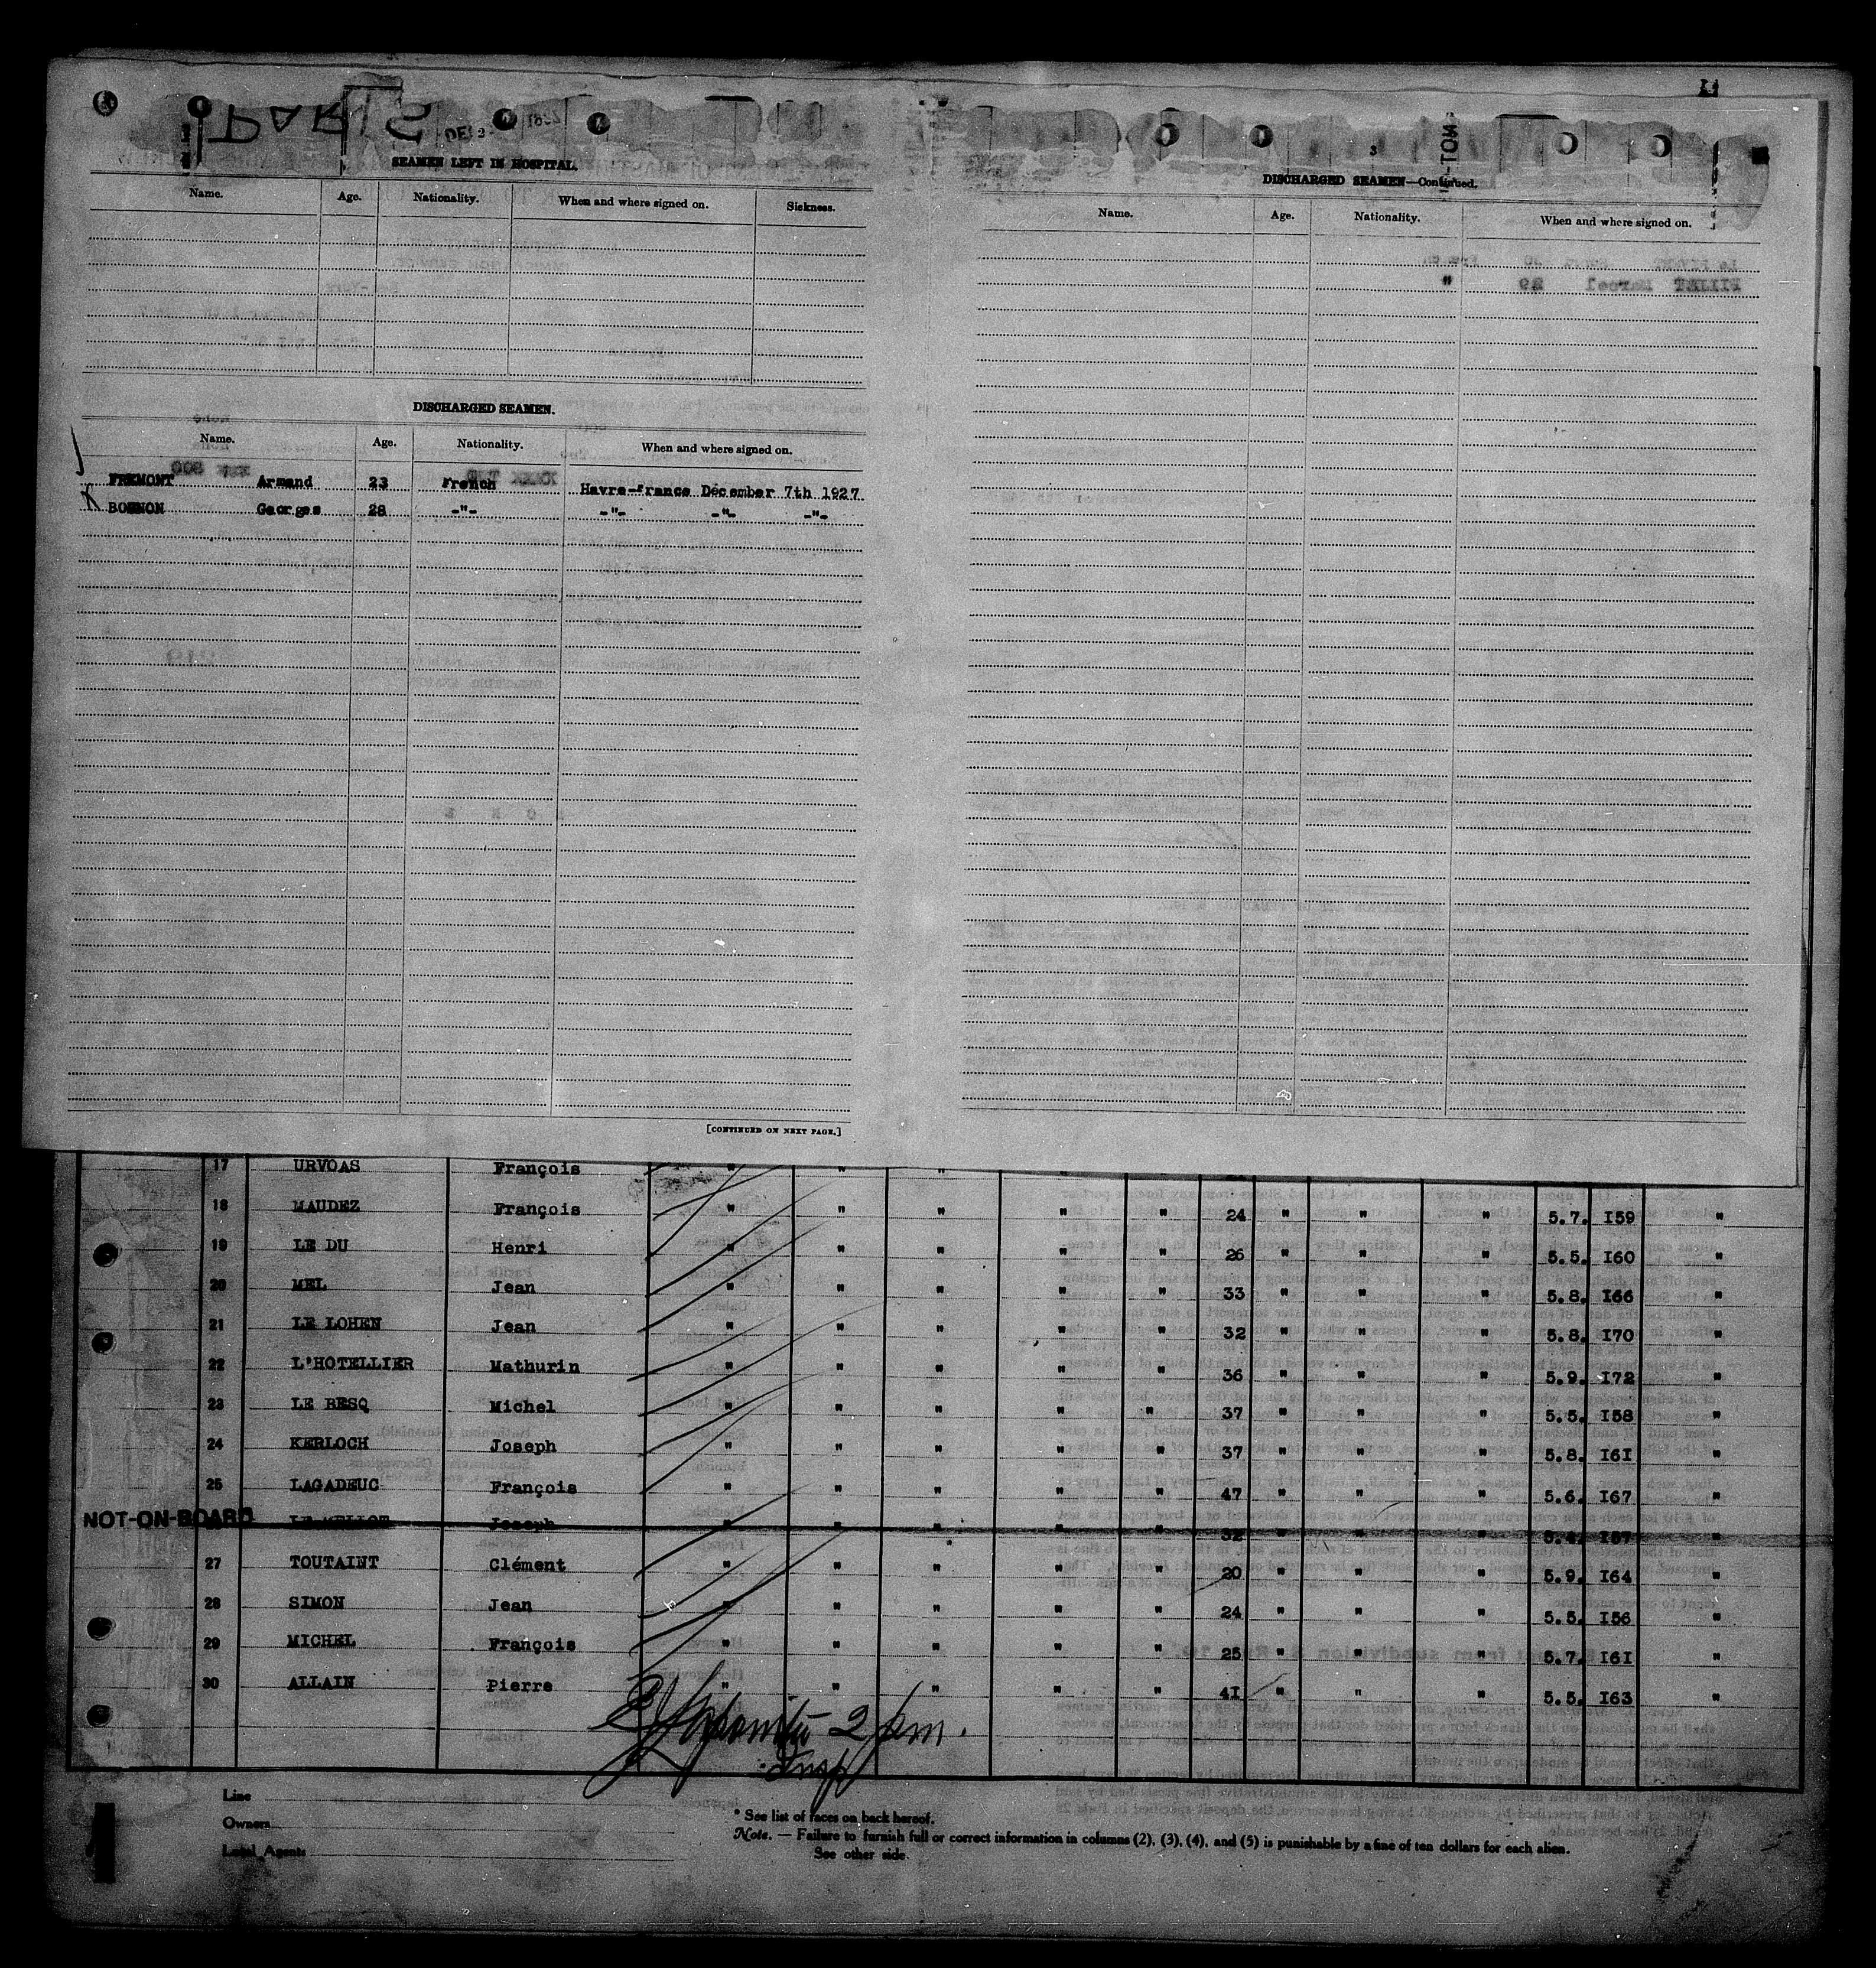 PARIS
SEAMEN LEFT IN HOSPITAL.
Name. Age. Nationality. When and where signed on. Sickness.
DISCHARGED SEAMEN.
Name. Age. Nationality. When and where signed on.
FREMONT Armand 23 French Havre-france December 7th 1927
Georges 28 -"- -"- -"- -"-
[CONTINUED ON NEXT PAGE.]
3
DISCHARGED SEAMEN—Continued.
Name. Age. Nationality. When and where signed on.
17 URVOAS François " " "
18 MAUDEZ François " " " " " 24 " " " 5.7. I59 "
19 LE DU Henri " " " " " 26 " " " 5.5. I60 "
20 MEL Jean " " " " " 33 " " " 5.8. I66 "
21 LE LOHEN Jean " " " " " 32 " " " 5.8. I70 "
22 L'HOTELLIER Mathurin " " " " " 36 " " " 5.9. I72 "
23 LE BESQ Michel " " " " " 37 " " " 5.5. I58 "
24 KERLOCH Joseph " " " " " 37 " " " 5.8. I6I "
25 LAGADEUC François " " " " " 47 " " " 5.6. I67 "
NOT-ON-BOARD Joseph " " " " " 32 " " " 5.4. I57 "
27 TOUTAINT Clément " " " " " 20 " " " 5.9. I64 "
28 SIMON Jean " " " " " 24 " " " 5.5. I56 "
29 MICHEL François " " " " " 25 " " " 5.7. I6I "
30 ALLAIN Pierre " " " " " 4I " " " 5.5. I63 "
2 pm.
Insp
Line
Owners
Local Agents
* See list of races on back hereof.
Note. — Failure to furnish full or correct information in columns (2), (3), (4), and (5) is punishable by a fine of ten dollars for each alien.
See other side.